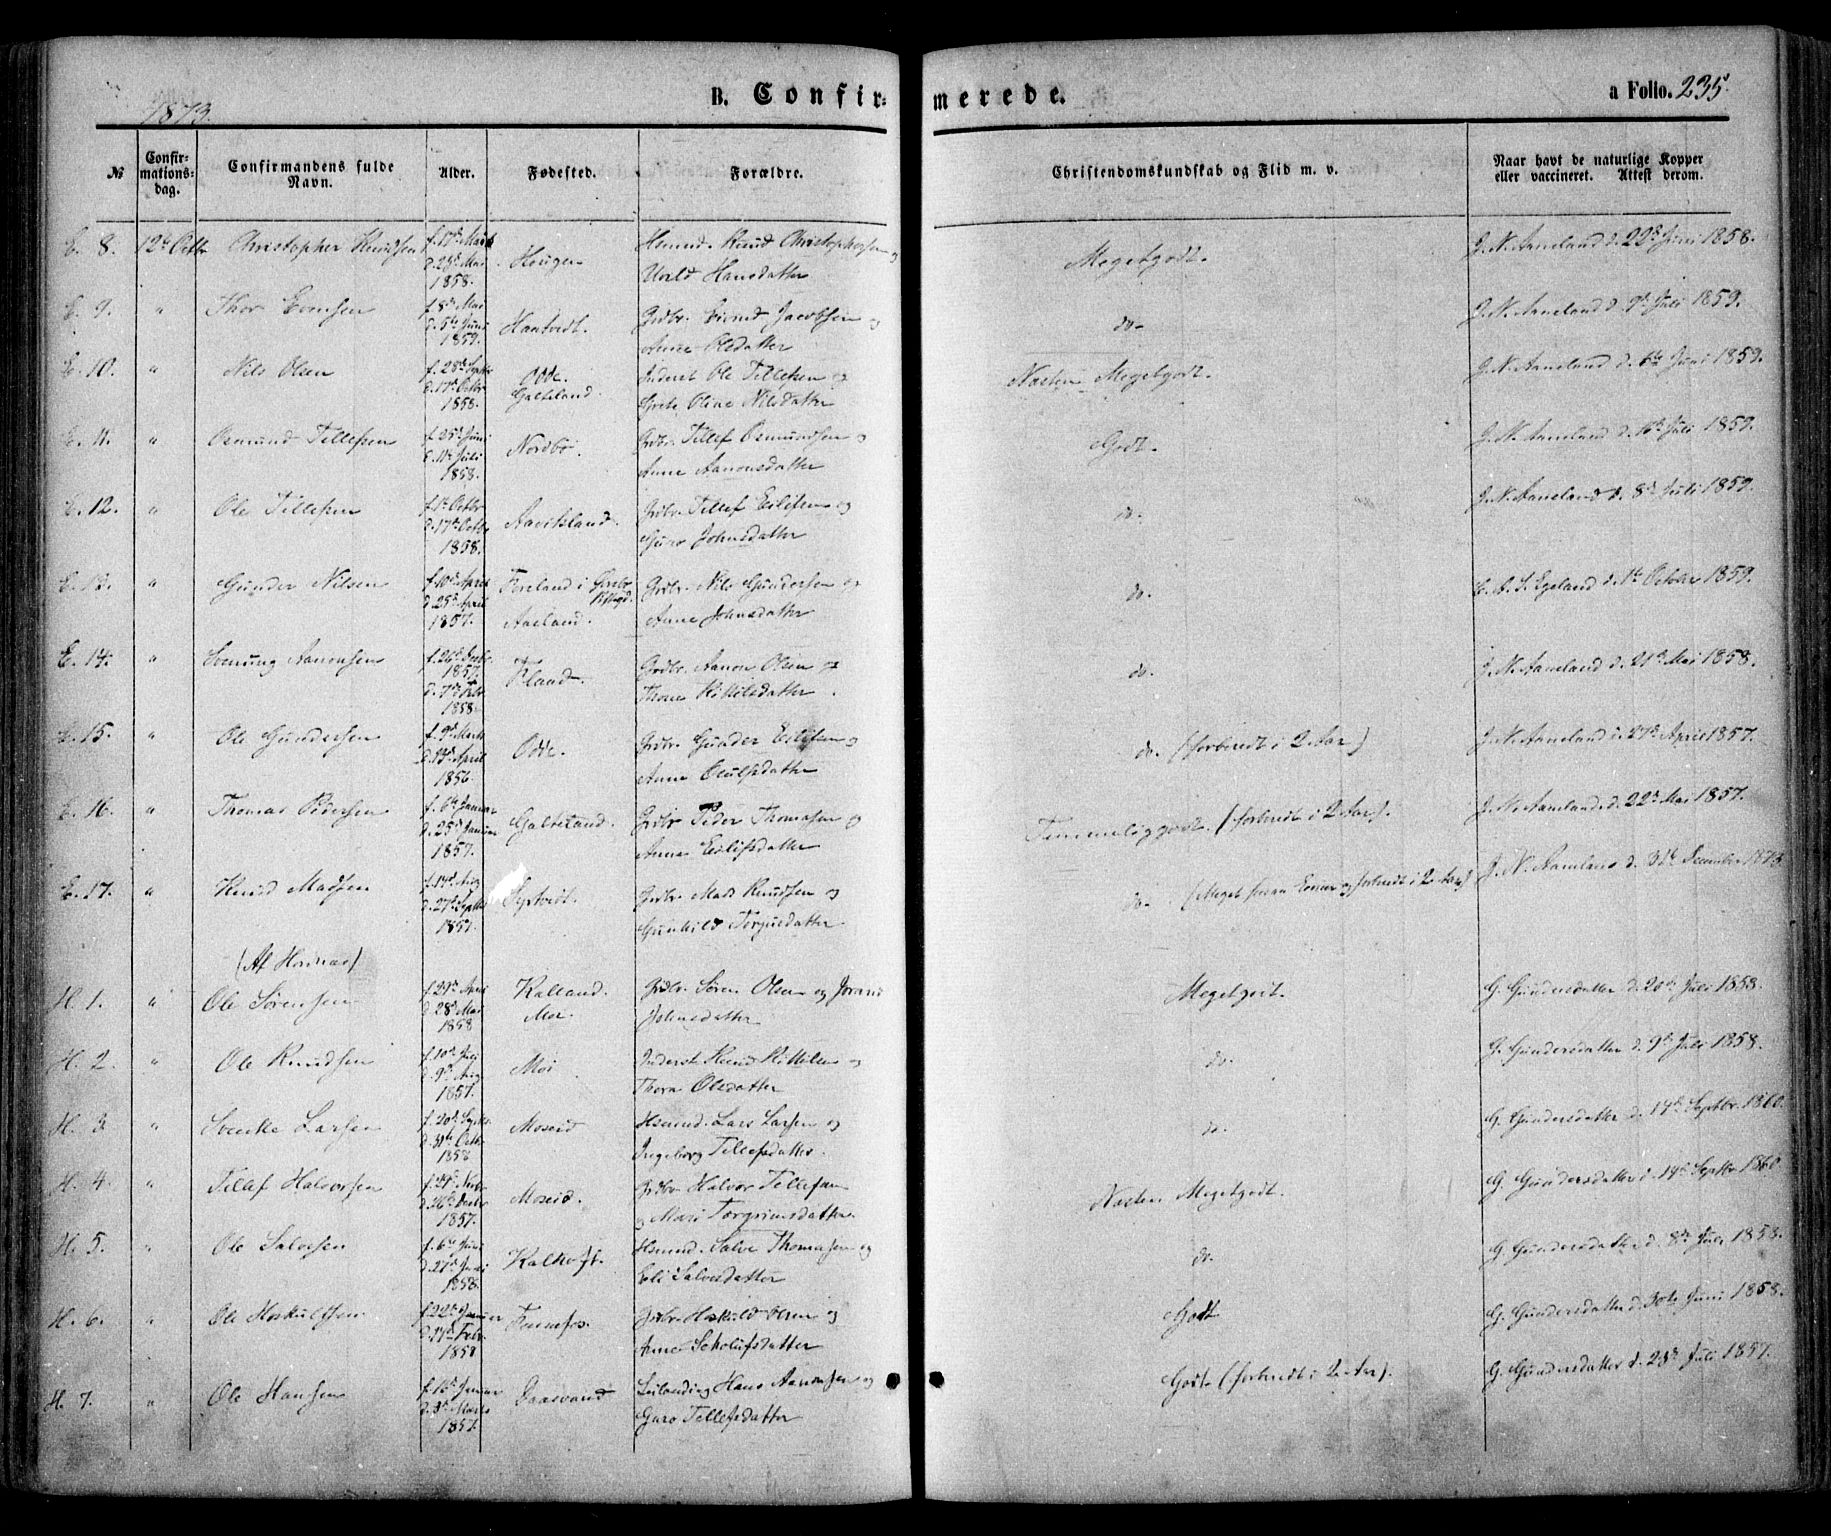 1873.
B. Confirmerede.
a Folio. 235
№
Confirmationsdag.
Confirmandens fulde Navn.
Alder.
Fødested.
Forældre.
Christendomskundskab og Flid m. v.
Naar havt de naturlige Kopper eller vaccineret. Attest derom.
E. 8. 12te Octbr Christopher Knudsen f. 17de d. 24de Mai 1858. Heugen Hsmnd. Knud Christophersen og Hansdatter Megetgodt. J. N. Aaneland d. 22de Juni 1858.
E. 9. " Thor f. 8de Mai d. 5te Juni 1859. Haatvedt. Grdbr. Jacobsen og Anne Olsdatter do- J. N. Aaneland d. 9de Juli 1859.
E. 10. " Nils Olsen f. 28de Septbr d. 17de Octbr 1858. Odde. Galteland. Inderst Ole Tellefsen og Grete Oline Nilsdatter Næsten Megetgodt. J. N. Aaneland d. 6te Juni 1859.
E. 11. " Osmund Tellefsen f. 25de Juni d. 11te Juli 1858. Nordbø. Grdbr. Tellef Osmundsen og Anne Aanonsdatter Godt. J. N. Aaneland d. Juli 1859.
E. 12. " Ole Tellefsen f. 1ste Octbr d. 17de Octbr 1858. Aavitsland. Grdbr. Tellef Eilifsen og Guro Johnsdatter do. J. N. Aaneland d. 8de Juli 1859.
E. 13. " Gunder Nilsen f. 10de April d. 25de April 1857. Foreland i Aaneland. Grdbr. Nils Gundersen og Anne Johnsdatter do. E. A. S. Egeland d. 1te October 1859.
E. 14. " Aanonsen f. 26de Decbr. 1857. d. 7de Febr. 1858. Flaad. Grdbr. Aanon Olsen og Thone Kittilsdatter. do. J. N. Aaneland d. 21de Mai 1858.
E. 15. " Ole Gundersen f. 9de Marts d. 13de April 1856. Odde. Grdbr. Gunder Eilifsen og Anne do. (forberedt i 2 Aar) J. N. Aaneland d. 27de April 1857.
E. 16. " Thomas Pedersen f. 6te Januar d. 25de Januar 1857. Galteland. Grdbr Peder Thomassen og Anne Eilifsdatter Temmeliggodt. (forberedt i 2 Aar). J. N. Aaneland d. 22de Mai 1857.
E. 17. " Knud Madsen f. 14de Aug d. 27de Septbr 1857. Syrtveit. Grdbr. Mads Knudsen og Gunhild Torgusdatter do. (Meget og forberedt i 2 Aar) J. N. Aaneland d. 31te December 1873.
(Af Hornnæs)
H. 1. " Ole Sørensen f. 29de April d. 28de Mai 1858 Kalland. Moe. Grdbr. Søren Olsen og Jorand Megetgodt. G. Gundersdatter d. 20de Juli 1858.
H. 2. " Ole Knudsen f. 10de d. 9de Aug 1857. Moi Inderst Knud Kittilsen og Thora Olsdatter do. G. Gundersdatter d. 9de Juli 1858.
H. 3. " Svenke Larsen f. 20de Septbr d. 31te Octbr 1858 Moseid Hsmnd. Lars Larsen og Ingeborg Tellefsdatter. do. G. Gundersdatter d. 14de Septbr. 1860.
H. 4. " Tellef Halvorsen f. 29de Novbr d. 26de Decbr 1857. Moseid. Grdbr Halvor Tellefsen og Mari Torgrimsdatter Næsten Megetgodt. G. Gundersdatter d. 14de Septbr 1860.
H. 5. " Ole Salvesen f. 6te Juni d. 27de Juni 1858. Kalhoft. Hsmnd. Salve Thomassen og Eli Salvesdatter do. G. Gundersdatter d. 8de Juli 1858.
H. 6. " Ole Hoskuldsen f. 22de Januar d. 14de Febr. 1858 Fennefos. Grdbr Hoskuld Olsen og Anne Godt G. Gundersdatter d. 30te Juni 1858.
H. 7. " Ole Hansen f. 16de Januar d. 8de Marts 1857. Daasvand Leilending Hans Aanonsen og Guro Tellefsdatter Godt (forberedt i 2 Aar). G. Gundersdatter d. 23de Juli 1857.